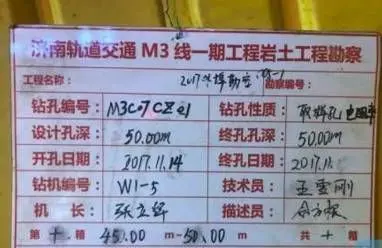 济南轨道交通 M3 线一期工程岩土工程勘察
工程名称: 勘察编号:
钻孔编号: M3C07CZ01 钻孔性质: 取样孔
设计孔深: 50.00m 终孔孔深: 50.00m
开孔日期: 2017.11.14 终孔日期: 2017.11.
钻机编号: W1-5 技术员: 王雪刚
机 长: 描述员:
第 十 箱 45.00 m-50.00 m 共 十 箱